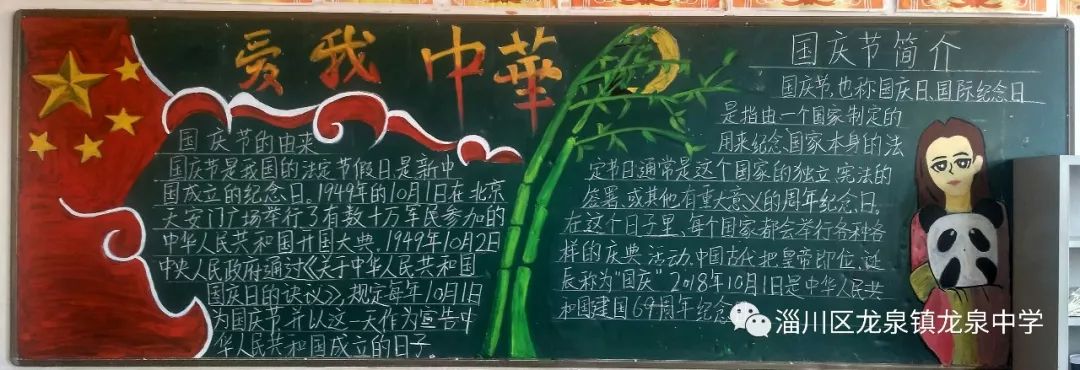 爱我中華
国庆节的由来
国庆节是我国的法定节假日是新中
国成立的纪念日。1949年的10月1日在北京
天安门广场举行了有数十万军民参加的
中华人民共和国开国大典、1949年10月2日
中央人民政府通过《关于中华人民共和国
国庆日的决议》，规定每年10月1日
为国庆节,并以这一天作为宣告中
华人民共和国成立的日子。
国庆节简介
国庆节,也称国庆日、国际纪念日
是指由一个国家制定的
用来纪念国家本身的法
定节日通常是这个国家的独立、宪法的
签署、或其他有重大意义的周年纪念日。
在这个日子里、每个国家都会举行各种各
样的庆典活动、中国古代把皇帝即位、诞
辰称为“国庆”2018年10月1日是中华人民共
和国建国69周年纪念
淄川区龙泉镇龙泉中学